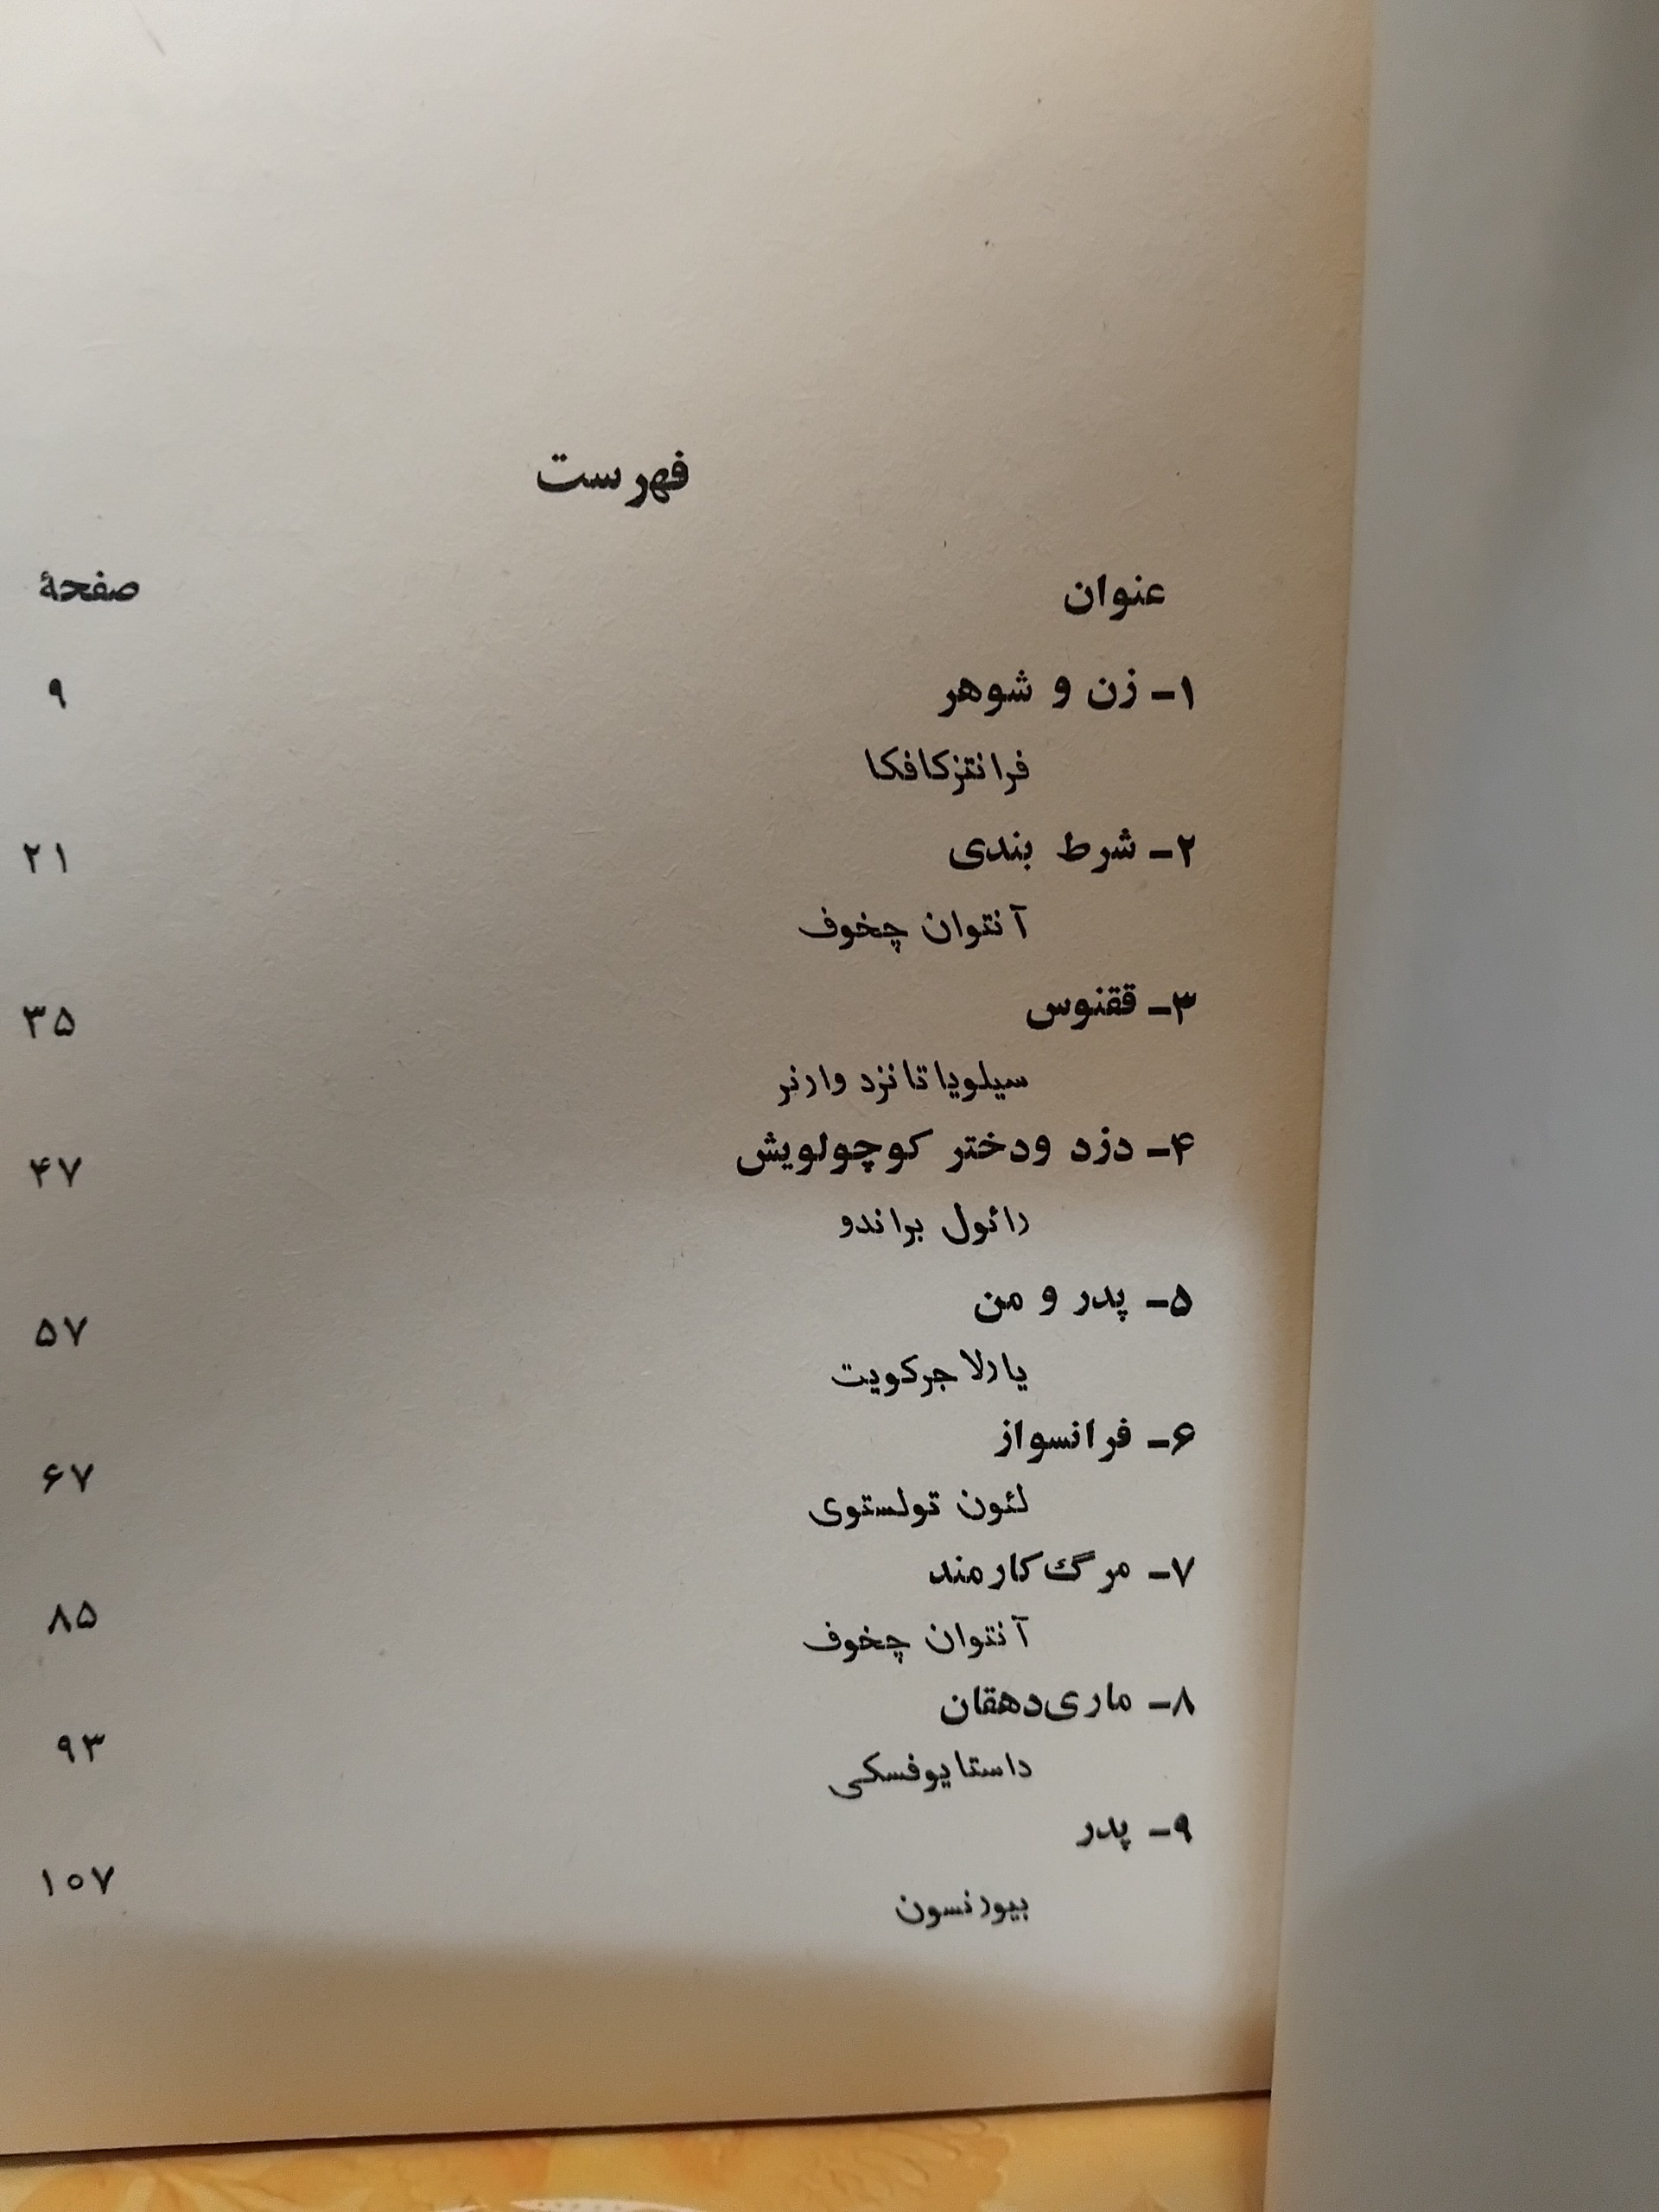 فهرست
عنوان صفحهٔ
۱- زن و شوهر ۹
فرانتزکافکا
۲- شرط بندی ۲۱
آنتوان چخوف
۳- ققنوس ۳۵
سیلویا تانزد وارنر
۴- دزد ودختر کوچولویش ۴۷
رائول براندو
۵- پدر و من ۵۷
یارلا جرکویت
۶- فرانسواز ۶۷
لئون تولستوی
۷- مرگ کارمند ۸۵
آنتوان چخوف
۸- ماری دهقان ۹۳
داستایوفسکی
۹- پدر ۱۰۷
بیورنسون